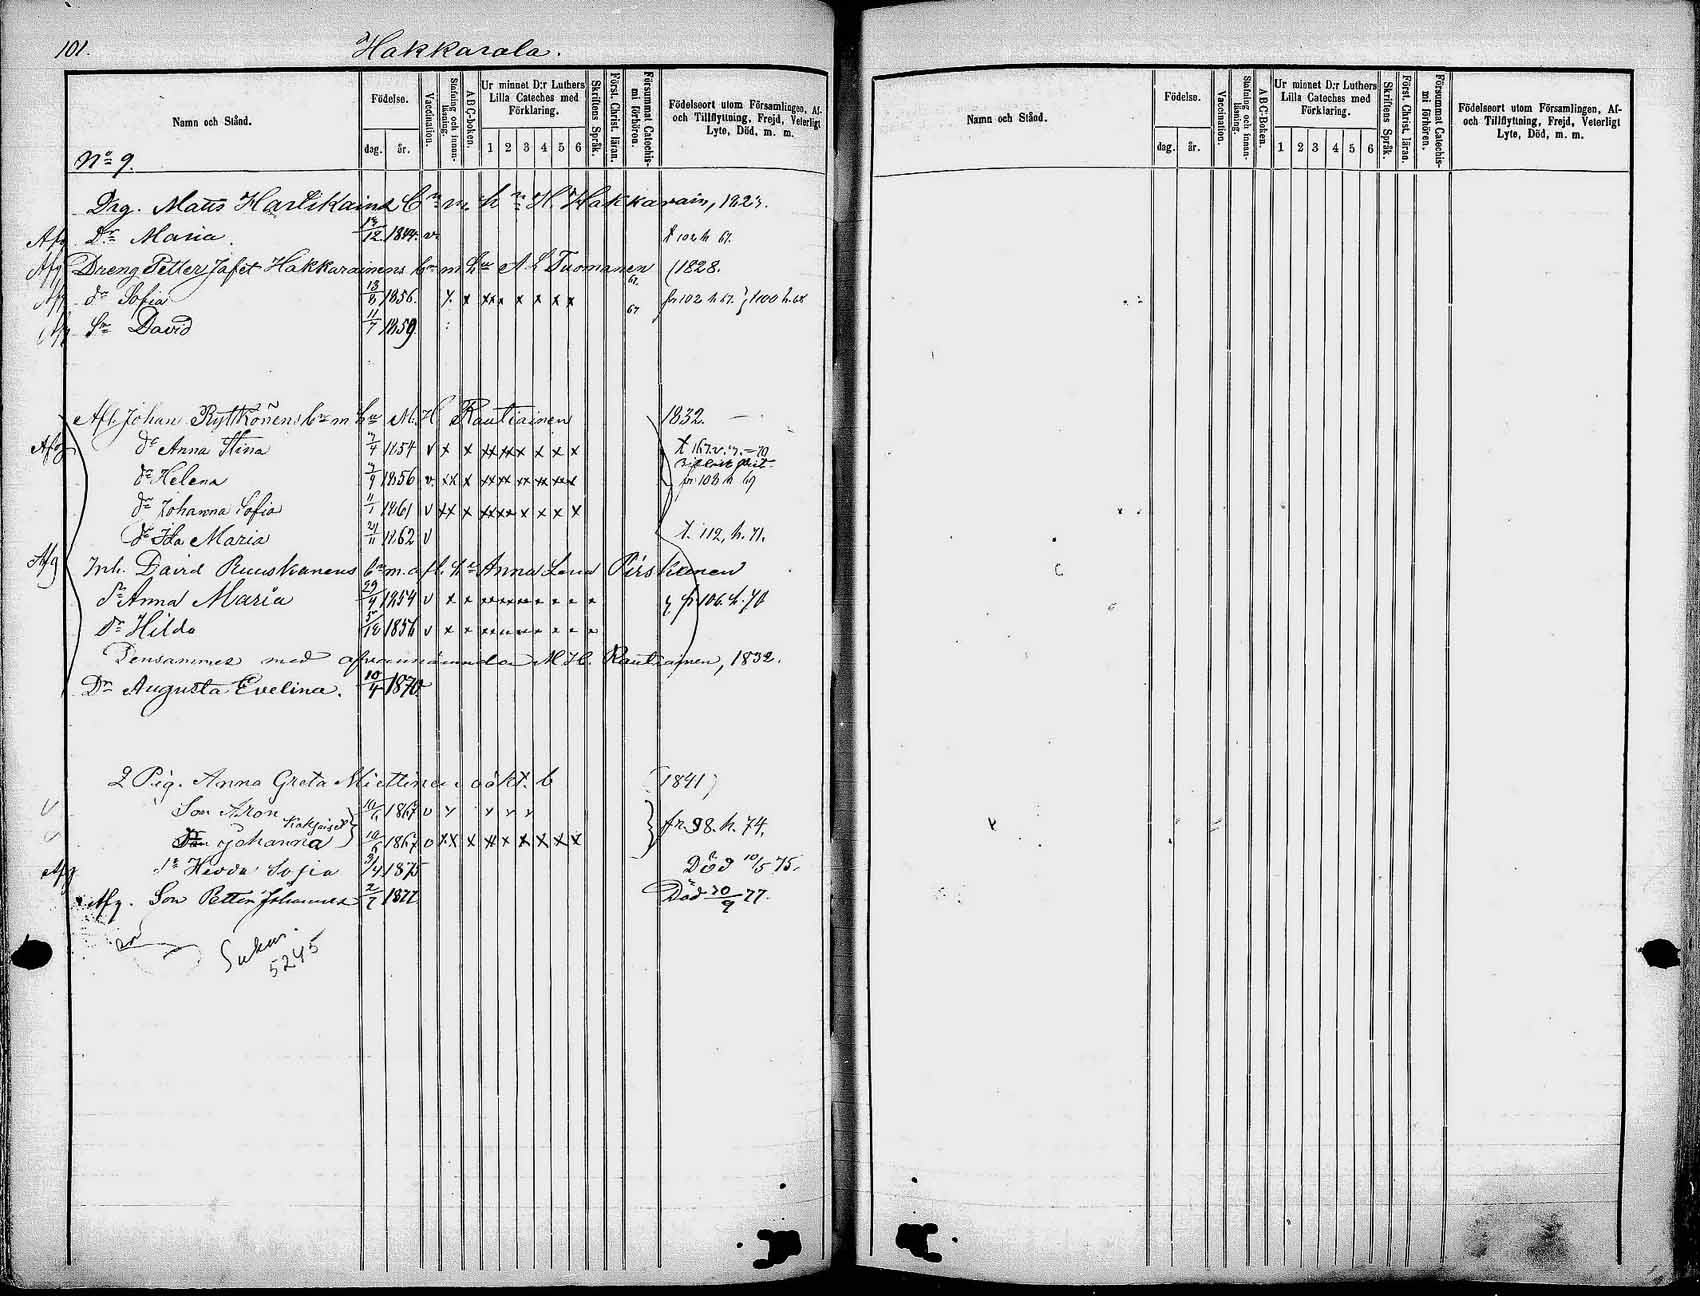 101. Hakkarala.
Namn och Stånd.
Födelse.
dag. år.
Vaccination.
Stafning och innan-läsning.
ABC-boken.
Ur minnet D:r Luthers Lilla Cateches med Förklaring.
1 2 3 4 5 6
Skriftens Språk.
Först. Christ. läran.
Försummat Catechis-mi förhören.
Födelseort utom Församlingen, Af- och Tillflyttning, Frejd, Veterligt Lyte, Död, m. m.
No 9.
Drg. Matts Hartikains H. Hakkarain, 1823.
Afg Dr Maria. 12 1844. v. t 102 h 67.
Afg Dreng Petter Jafet Hakkarainens bn m A L Tuomanen (1828.
Afg dr Sofia 13/8 1856. x x x x x x x 67. fr 102 h 67. } 1100 h. 68
Afg Sn David 11/7 1859 67
Afl. Johan Rytkönens bn m hu M. H. Rautiainen 1832.
Afg dr Anna Stina 7/4 1854 v x x xx xx x x x x
dr Helena 7/9 1856 v. xx x xx xx xx xx xxx fr 108 h 69
dr Johanna Sofia 11/1 1861 v xx x xx xx x x x x
dr Ida Maria 21/11 1862 v t. 112, h. 71.
Afg Inh. David Ruuskanens bn m. afl. h Anna Lena Pirskanen
dr Anna Maria 29/4 1854 v x x fr 106. h. 70
dr Hilda 5/12 1856 v x x
Densammes med ofvannämnda M. H. Rautiainen, 1832.
Dr Augusta Evelina. 10/4 1870
2 Pig. Anna Greta Miettinen oäkt. b (1841)
Son Aron 10/6 1867 v
Johanna 10/6 1867 v xx x xx x x x x x } fr. 98. h. 74.
Afg dr Hedda Sofia 3/4 1875 Död 10/5 75.
Afg. Son Petter Johannes 2/7 1877 Död 30/9 77.
5245
Namn och Stånd.
Födelse.
dag. år.
Vaccination.
Stafning och innan-läsning.
ABC-Boken.
Ur minnet D:r Luthers Lilla Cateches med Förklaring.
1 2 3 4 5 6
Skriftens Språk.
Först. Christ. läran.
Försummat Catechis-mi förhören.
Födelseort utom Församlingen, Af- och Tillflyttning, Frejd, Veterligt Lyte, Död, m. m.